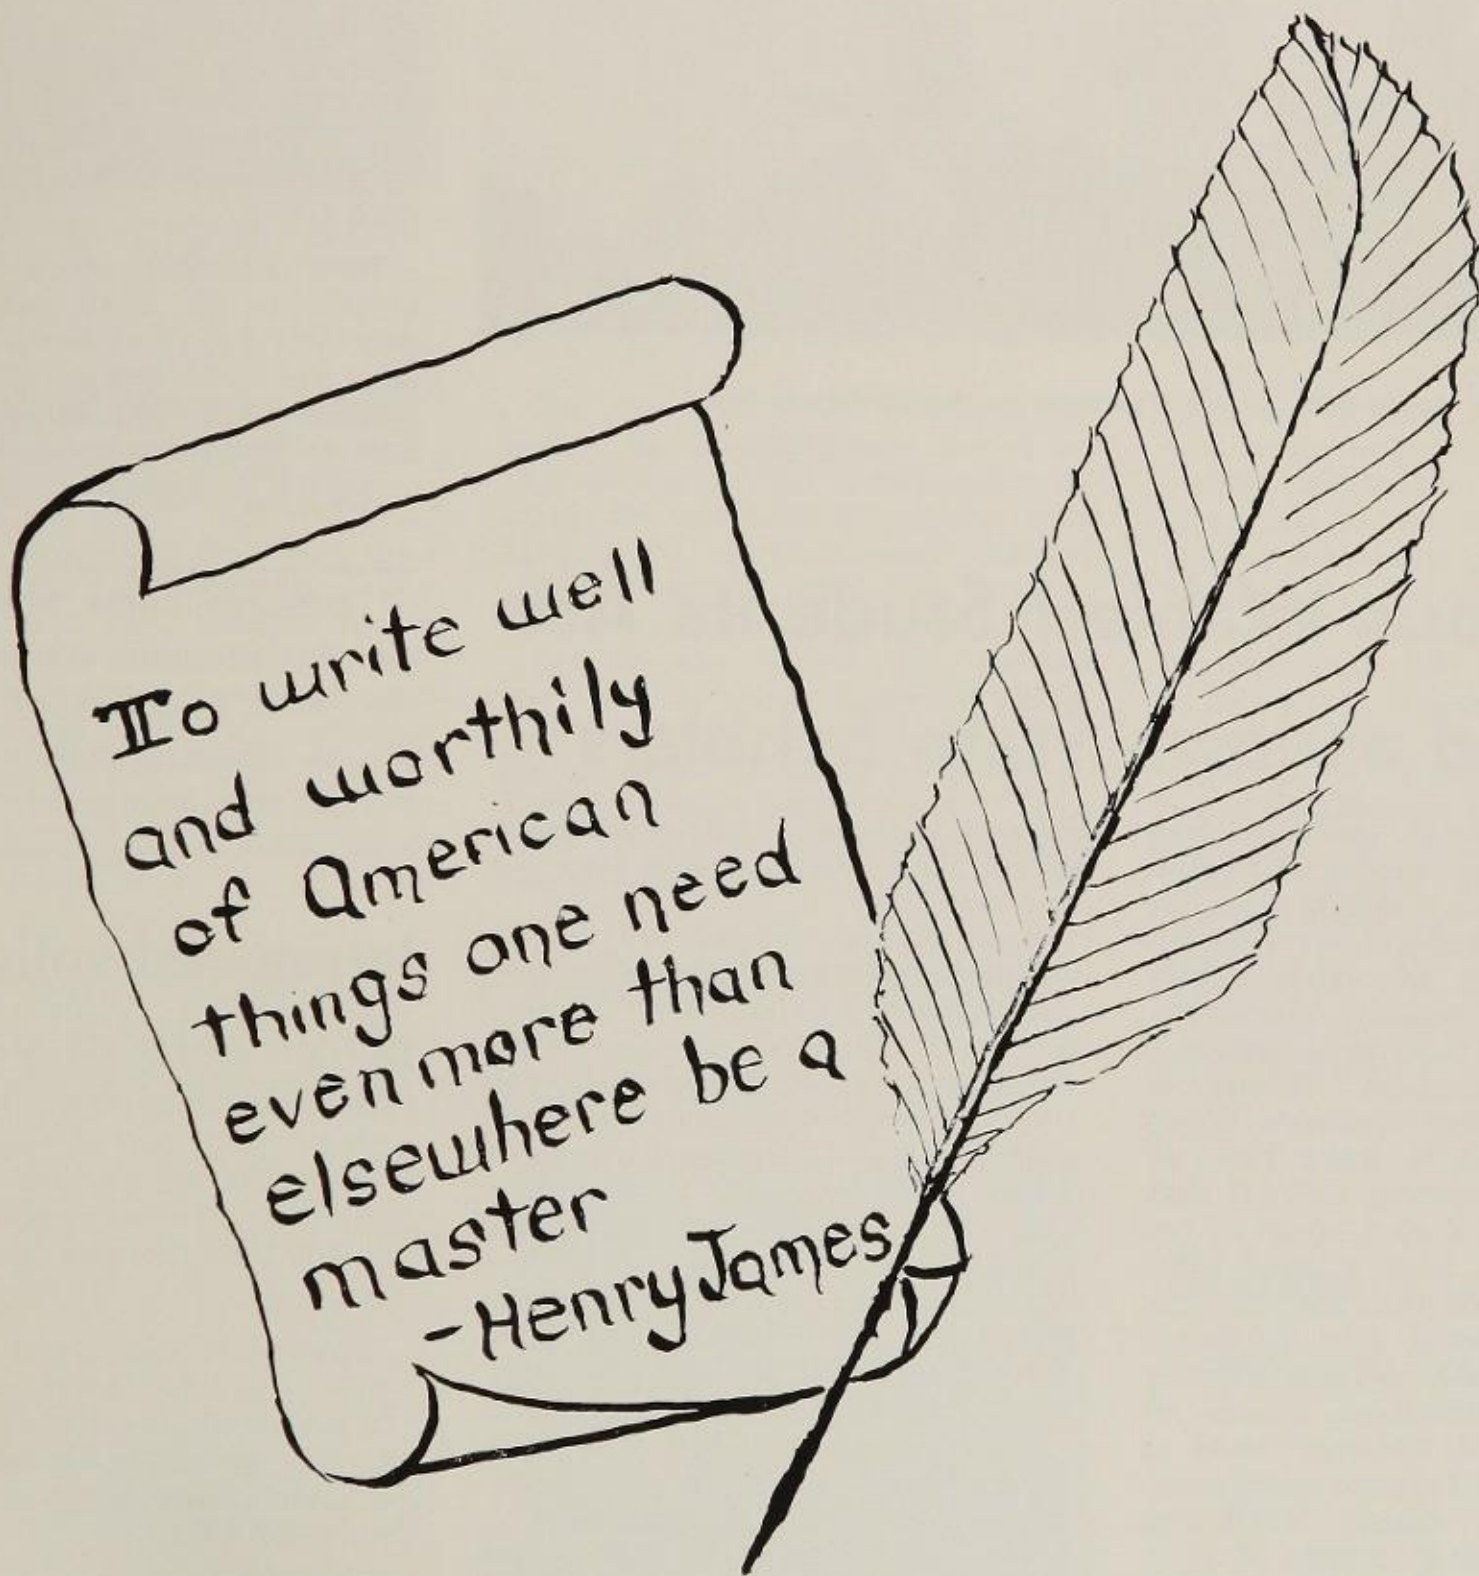 To write well
and worthily
of American
things one need
even more than
elsewhere be a
master
-Henry James